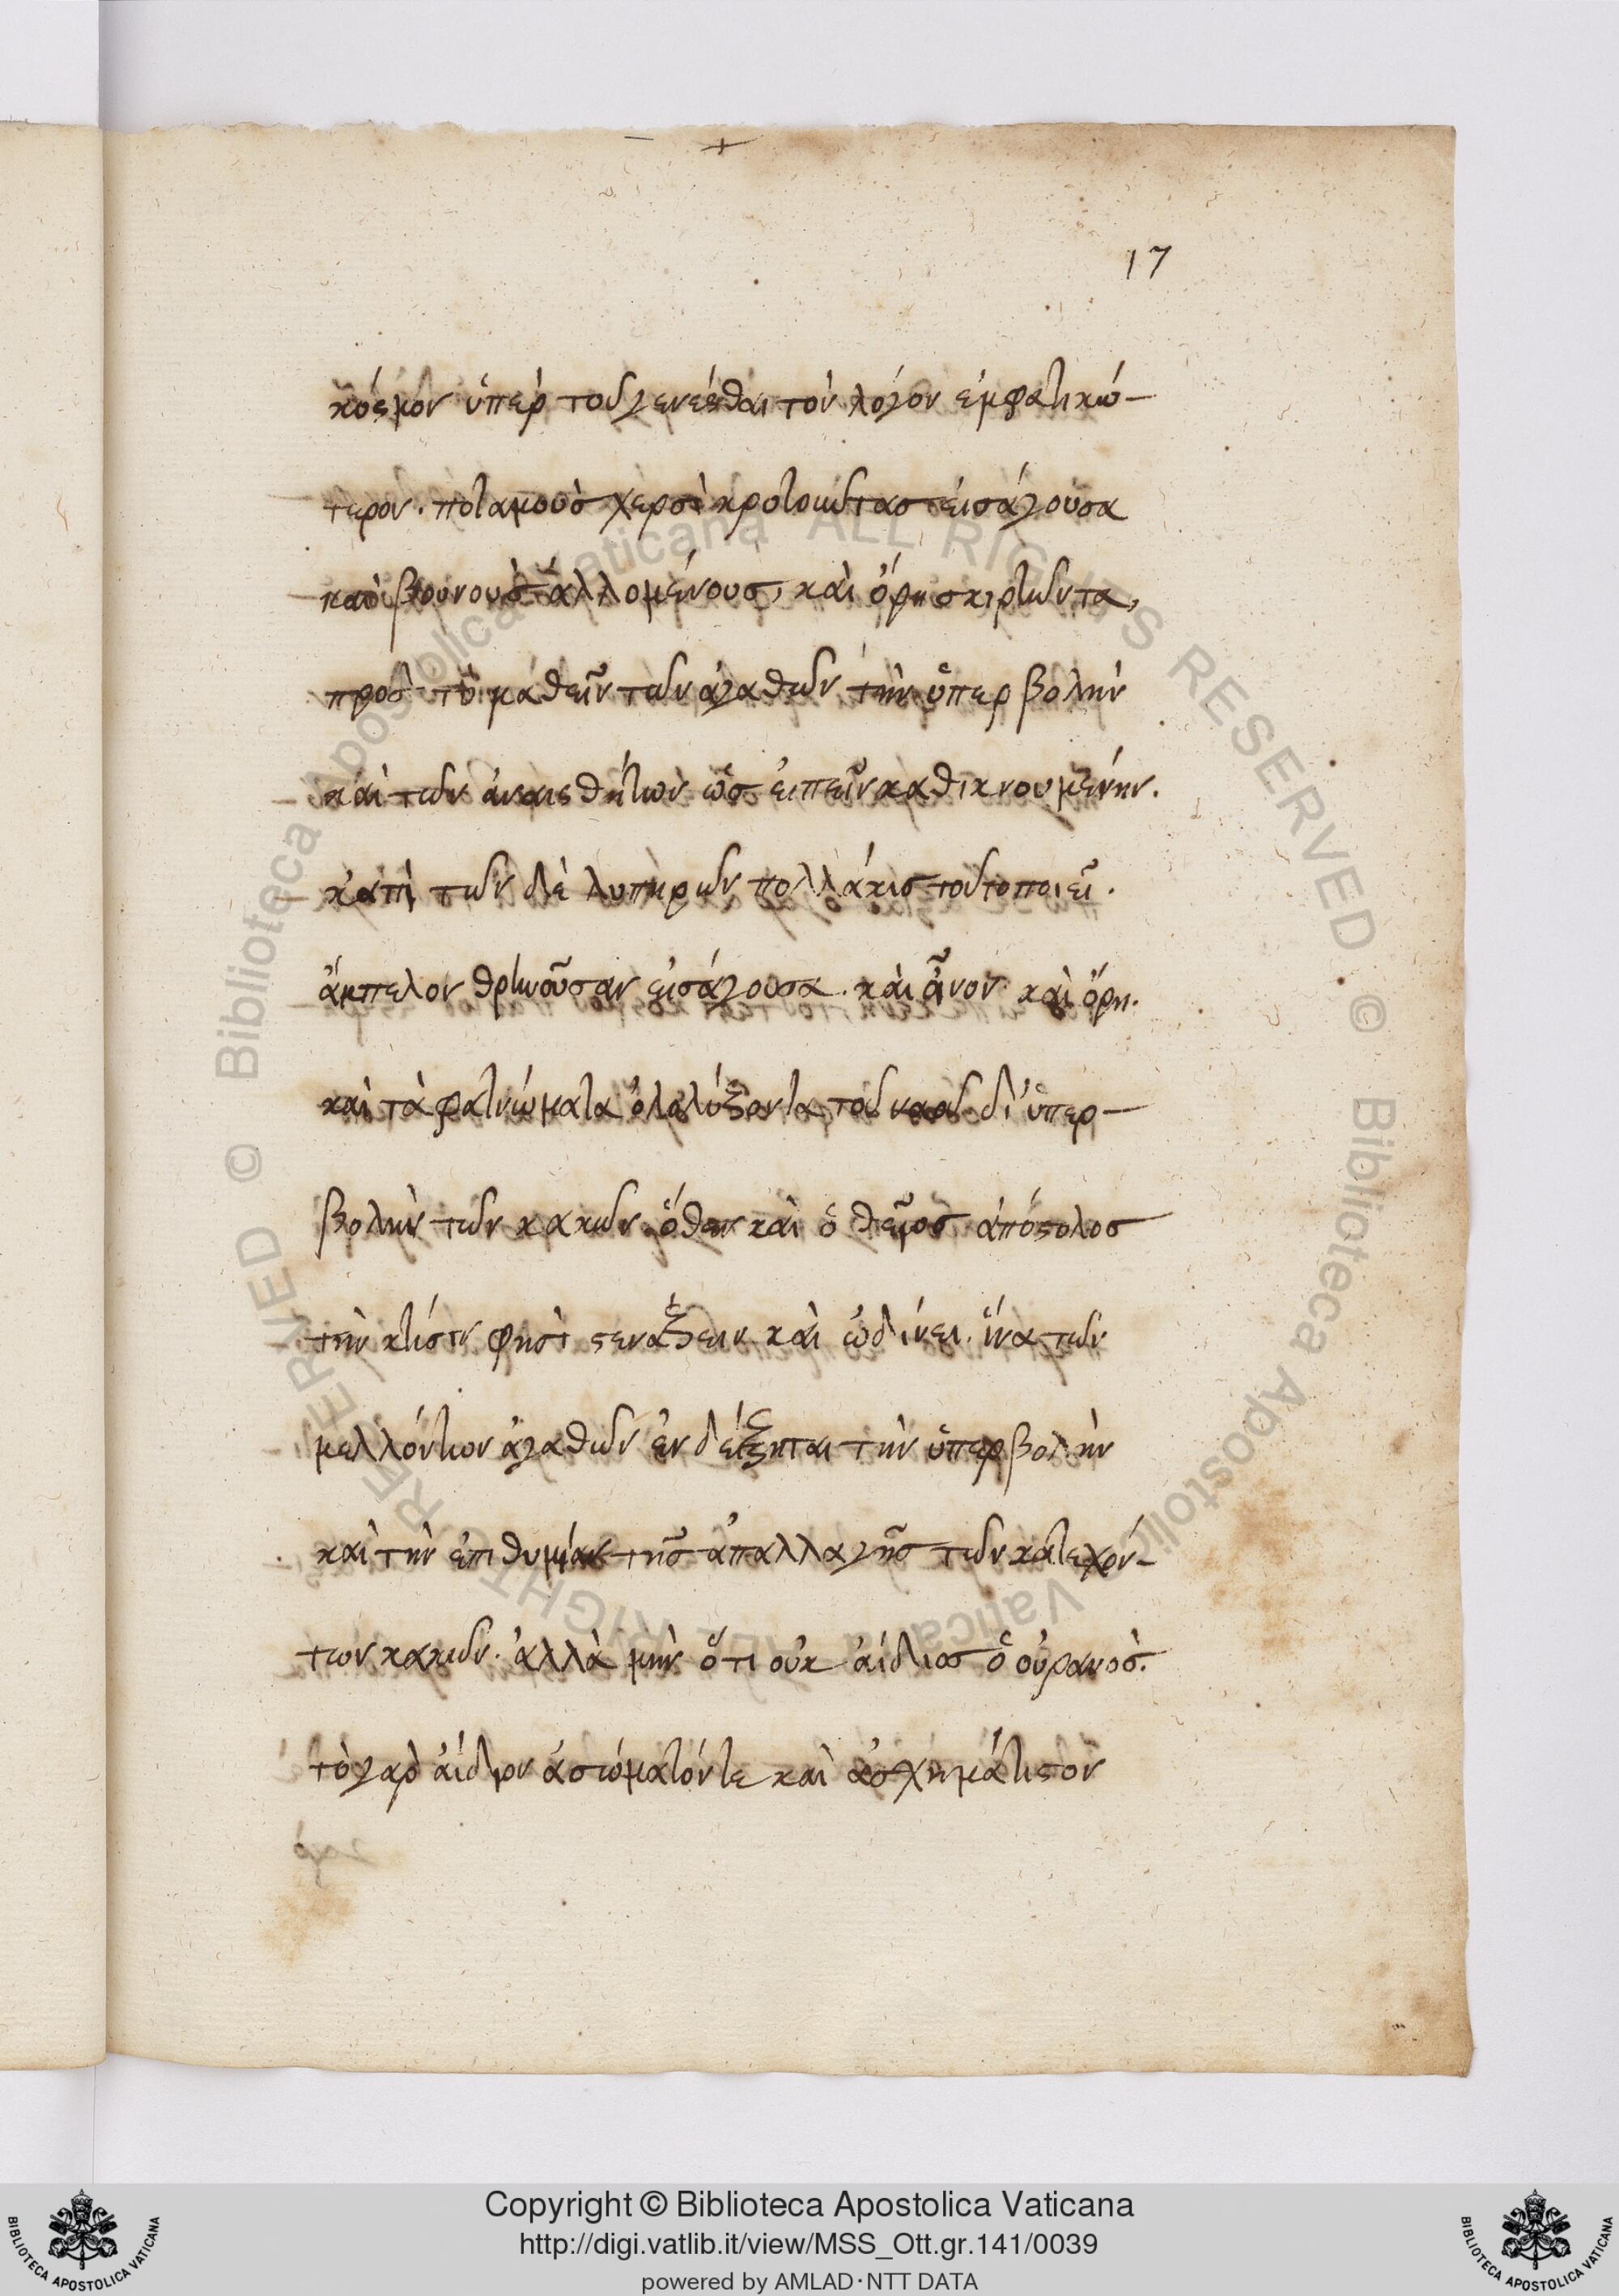 17
κόσμον ὑπὲρ τοῦ γενέσθαι τὸν λόγον ἐμφατικώ-
τερον. ποταμοὺς χερσὶ κροτοῦντας εἰσάγουσα
καὶ βουνοὺς ἁλλομένους, καὶ ὄρη σκιρτῶντα,
πρὸς τὸ μαθεῖν τῶν ἀγαθῶν τὴν ὑπερβολὴν
καὶ τῶν ἀναισθήτων ὡς εἰπεῖν καθικνουμένην.
κἀπὶ τῶν δὲ λυπηρῶν πολλάκις τοῦτο ποιεῖ.
ἄμπελον θρηνοῦσαν εἰσάγουσα. καὶ οἶνον. καὶ ὄρη.
καὶ τὰ φατνώματα ὀλολύζοντα τοῦ ναοῦ δι' ὑπερ-
βολὴν τῶν κακῶν. ὅθεν καὶ ὁ θεῖος ἀπόστολος
τὴν κτίσιν φησὶ στενάζειν καὶ ὠδίνει. ἵνα τῶν
μελλόντων ἀγαθῶν ἐνδείξηται τὴν ὑπερβολὴν
καὶ τὴν ἐπιθυμίαν τῆς ἀπαλλαγῆς τῶν κατεχόν-
των κακῶν. ἀλλὰ μὴν ὅτι οὐκ ἀΐδιος ὁ οὐρανὸς.
τὸ γὰρ ἀΐδιον ἀσώματόν τε καὶ ἀσχημάτιστον
Copyright © Biblioteca Apostolica Vaticana
http://digi.vatlib.it/view/MSS_Ott.gr.141/0039
powered by AMLAD·NTT DATA